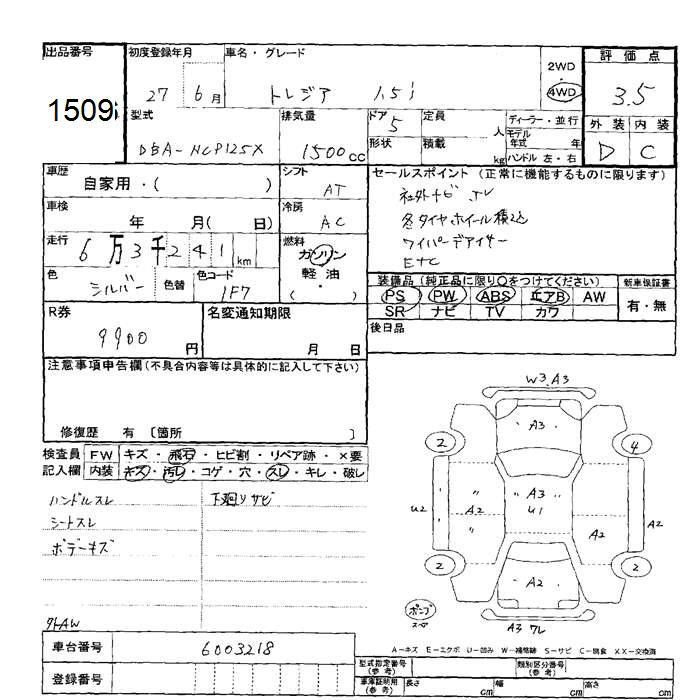 出品番号 初度登録年月 車名・グレード 2WD・4WD 評価点
1509 27 6月 トレジア 1.5i 3.5
型式 排気量 ドア 定員 ディーラー・並行 外装 内装
DBA-NCP125X 1500cc 5 人 モデル年式 年 D C
形状 積載 kg ハンドル 左・右
車歴 シフト セールスポイント(正常に機能するものに限ります)
自家用・( ) AT 社外ナビ、TV
車検 冷房 冬タイヤ、ホイール積込
年 月( 日) AC ワイパーデアイサー
走行 燃料 ETC
6万3千241km ガソリン
色 シルバー 色替 色コード 1F7 軽・油
( )
装備品(純正品に限り○をつけてください) 新車保証書
PS PW ABS エアB AW 有・無
SR ナビ TV カワ
R券 名変通知期限 後日品
9900円 月 日
注意事項申告欄(不具合内容等は具体的に記入して下さい)
修復歴 有 〔箇所 〕
検査員 FW キズ・飛石・ヒビ割・リペア跡・×要
記入欄 内装 キズ・汚レ・コゲ・穴・スレ・キレ・破レ
ハンドルスレ 下廻りサビ
シートスレ
ボデーキズ
外AW
W3、A3
A3
2 4
" A3 "
U2 A2 U1 A2 A2
2 2
A2
ポンプ
スペア
A3 ワレ
A-キズ E-エクボ U-凹み W-補修跡 S-サビ C-腐食 XX-交換済
車台番号 6003218
登録番号
型式指定番号(参考) 類別区分番号(参考)
車庫証明用(参考) 長さ cm 幅 cm 高さ cm